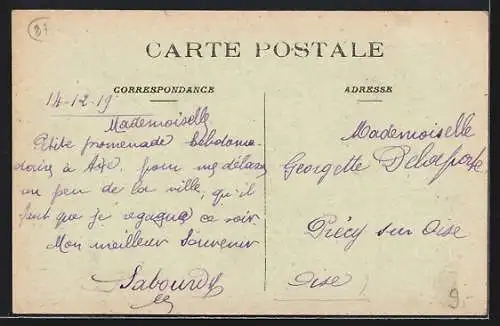 87
CARTE POSTALE
CORRESPONDANCE
ADRESSE
14-12-19
Mademoiselle
Petite promenade hebdoma-
daire à Aixe, pour me délasser
un peu de la ville, qu'il
faut que je regagne ce soir.
Mon meilleur Souvenir
Sabourdy
Mademoiselle
Georgette Delaporte
Précy sur Oise
Oise
9.-